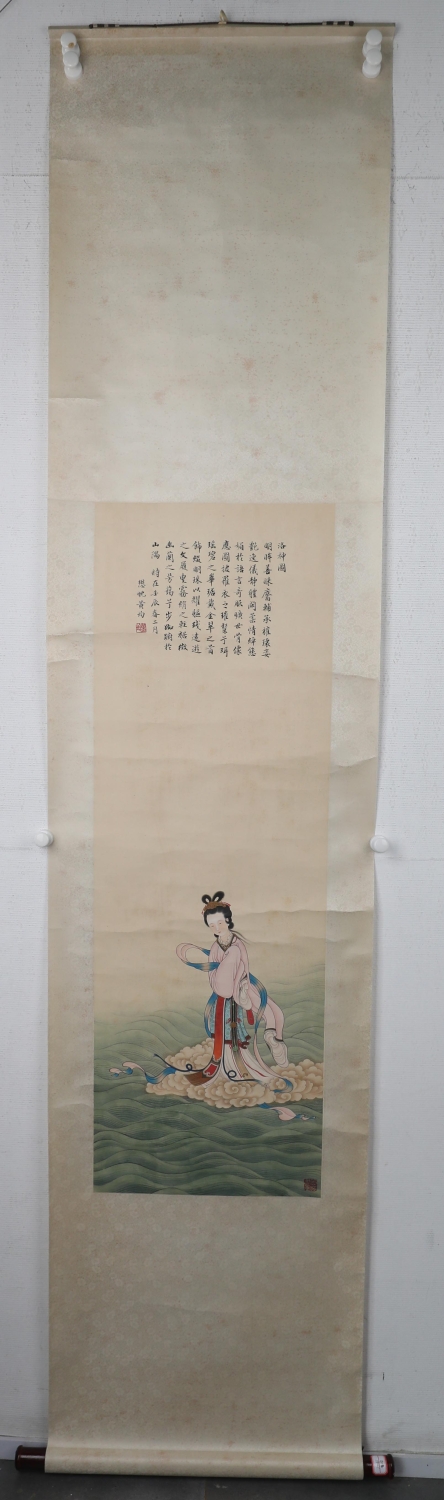 洛神圖
明眸善睞靨輔承權瓌姿
艶逸儀靜體閑柔情綽態
媚於語言奇服曠世骨像
應圖披羅衣之璀粲兮珥
瑤碧之華琚戴金翠之首
飾綴明珠以耀軀踐遠遊
之文履曳霧綃之輕裾微
幽蘭之芳藹兮步踟躕於
山隅 時在壬辰春二月